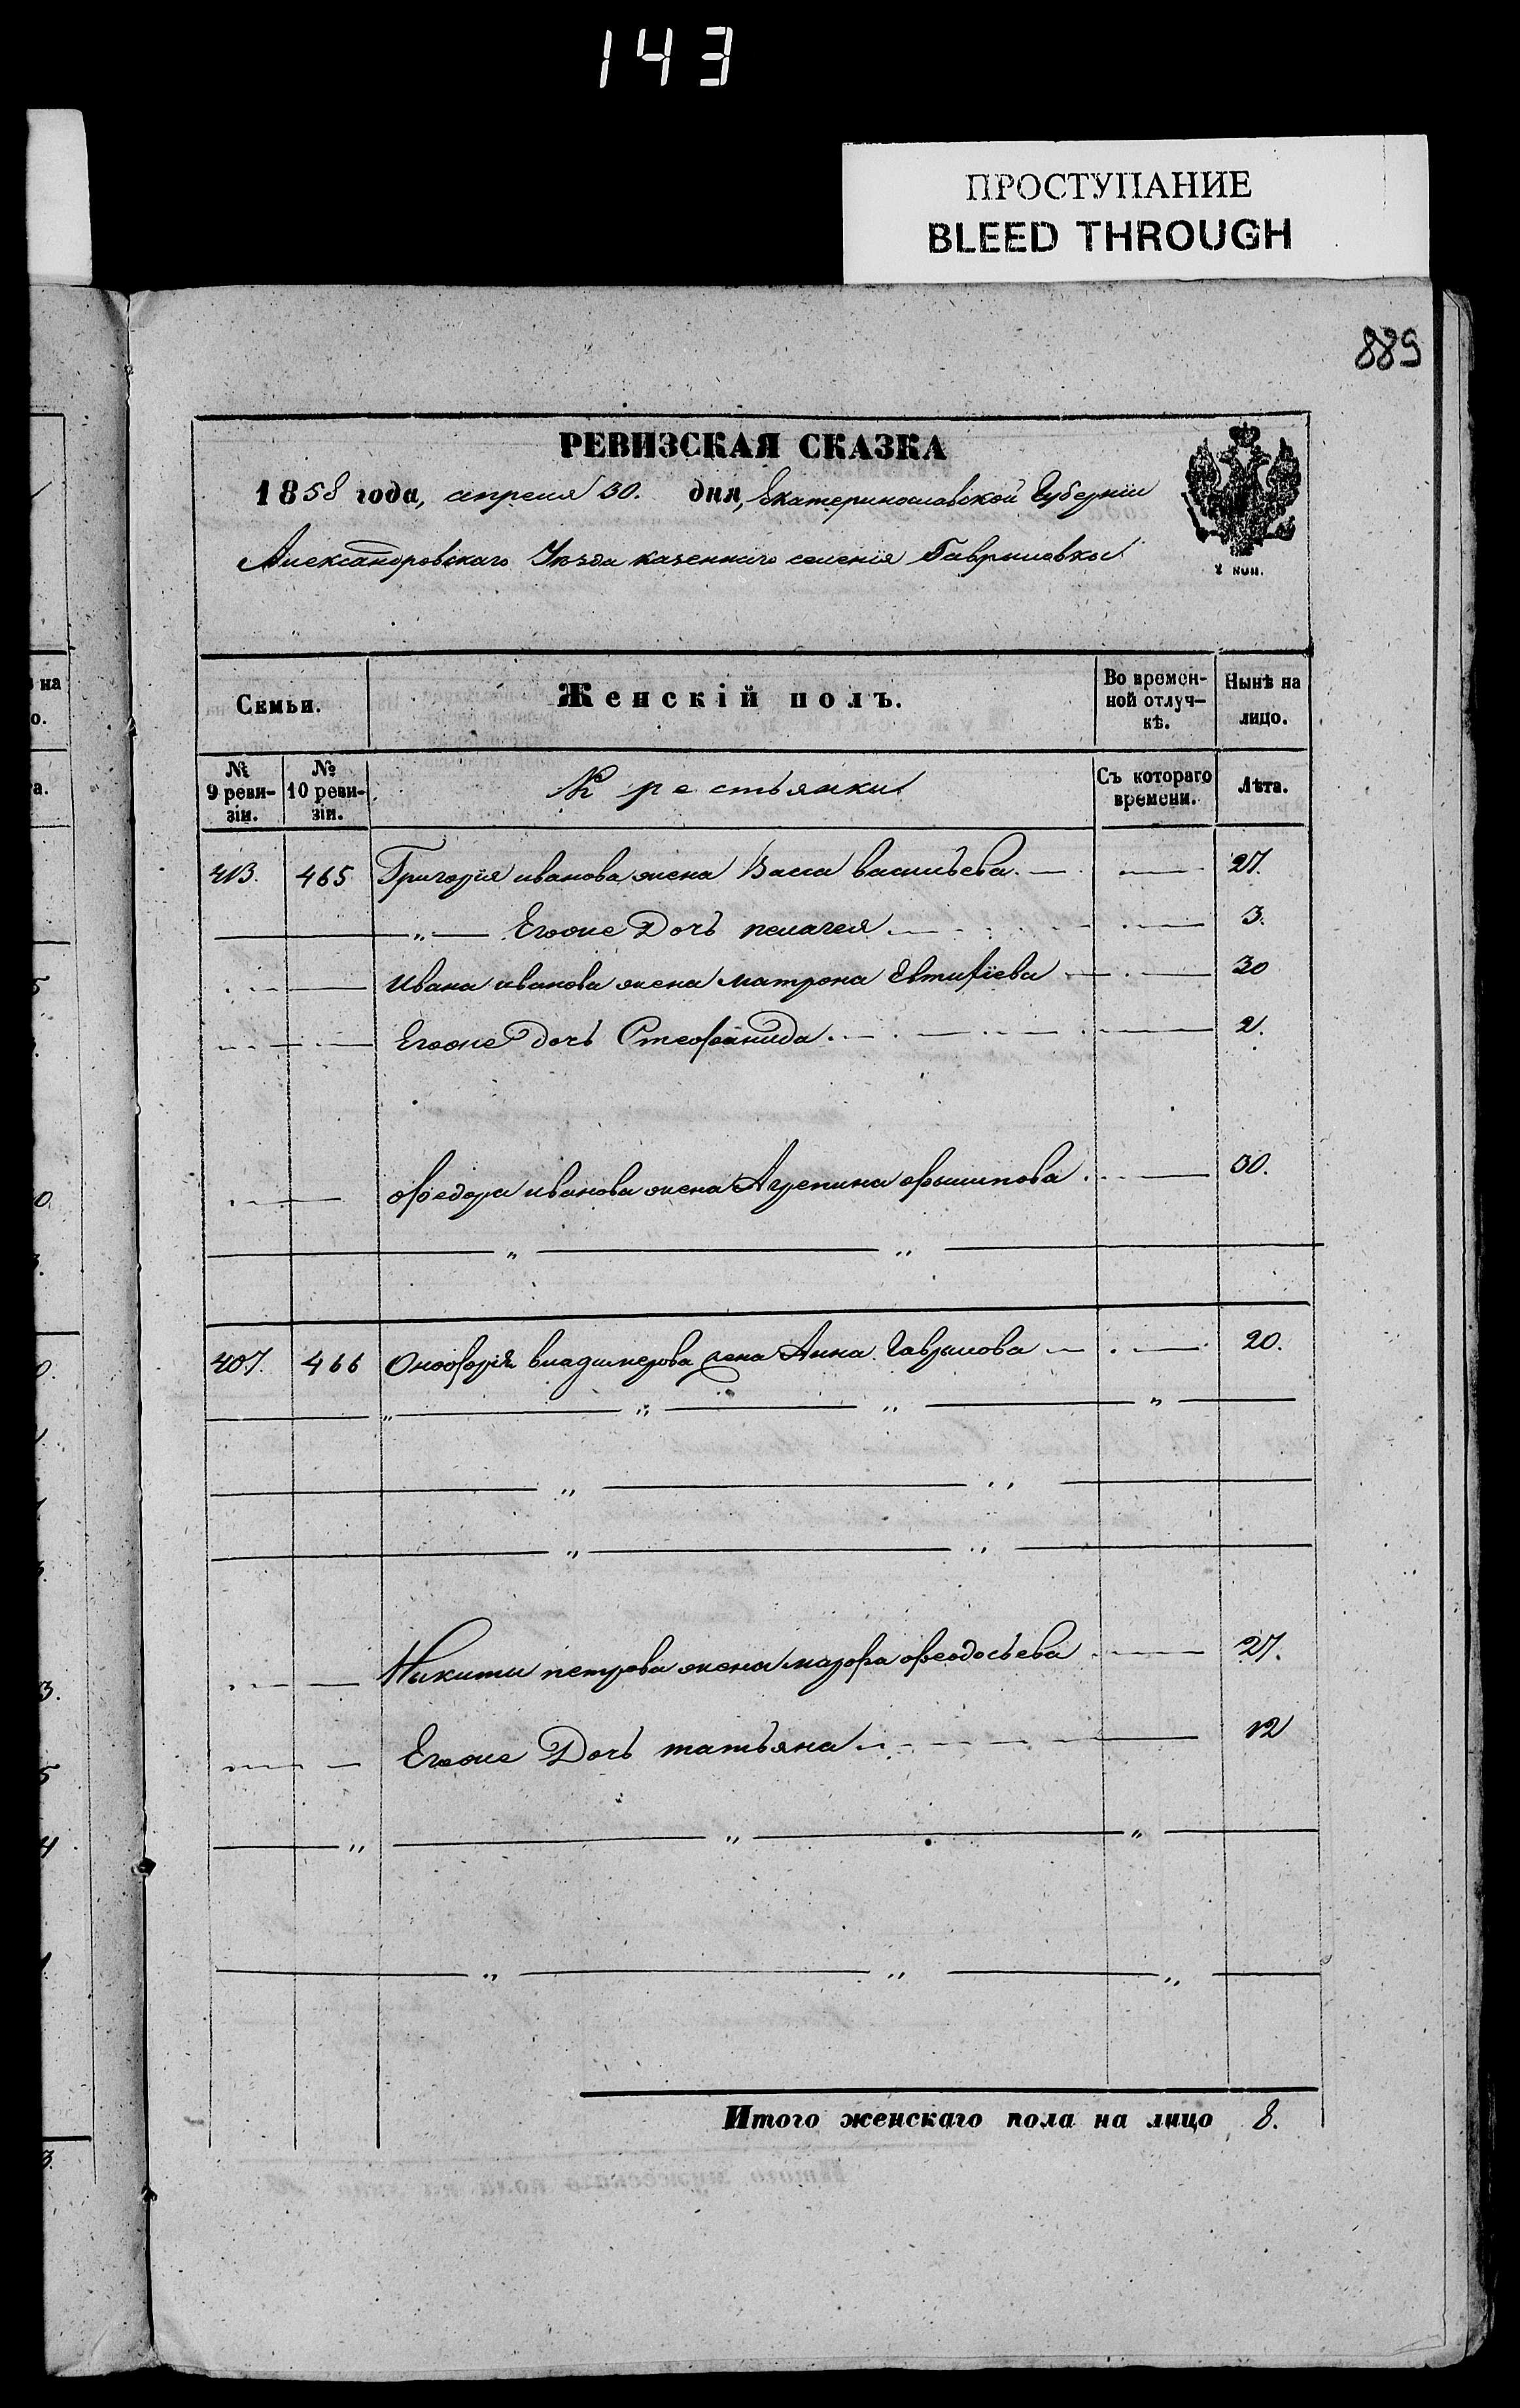 143
ПРОСТУПАНИЕ
BLEED THROUGH
889
РЕВИЗСКАЯ СКАЗКА
1858 года, апреля 30. дня, Екатеринославской Губернiи
Александровскаго Уѣзда казеннаго селенiя Гаврыловки
коп.
Семьи. Женскiй полъ. Во времен-ной отлуч-кѣ. Нынѣ на лицо.
№ 9 реви-зiи. № 10 реви-зiи. Крестьянки Съ котораго времени. Лѣта.
413. 465 Григорiя иванова жена Васса васильева 27.
" Егоже Дочь пелагея 3.
Ивана иванова жена матрона Евтифiева 30
Егоже дочь Стефанида 2.
Федора иванова жена Агрепина 30.
407. 466 Онофрiя владимерова жена Анна Гаврилова 20.
Никиты петрова жена марфа феодосьева 27.
Егоже Дочь татьяна 12
Итого женскаго пола на лицо 8.